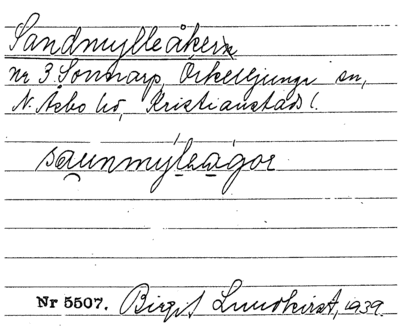 Sandmylleåker
Nr 3 Sonnarp, Örkelljunga sn,
N. Åsbo hd, Kristianstads l.
saunmýleågoe
Nr 5507. Birgit Lundkvist, 1939.